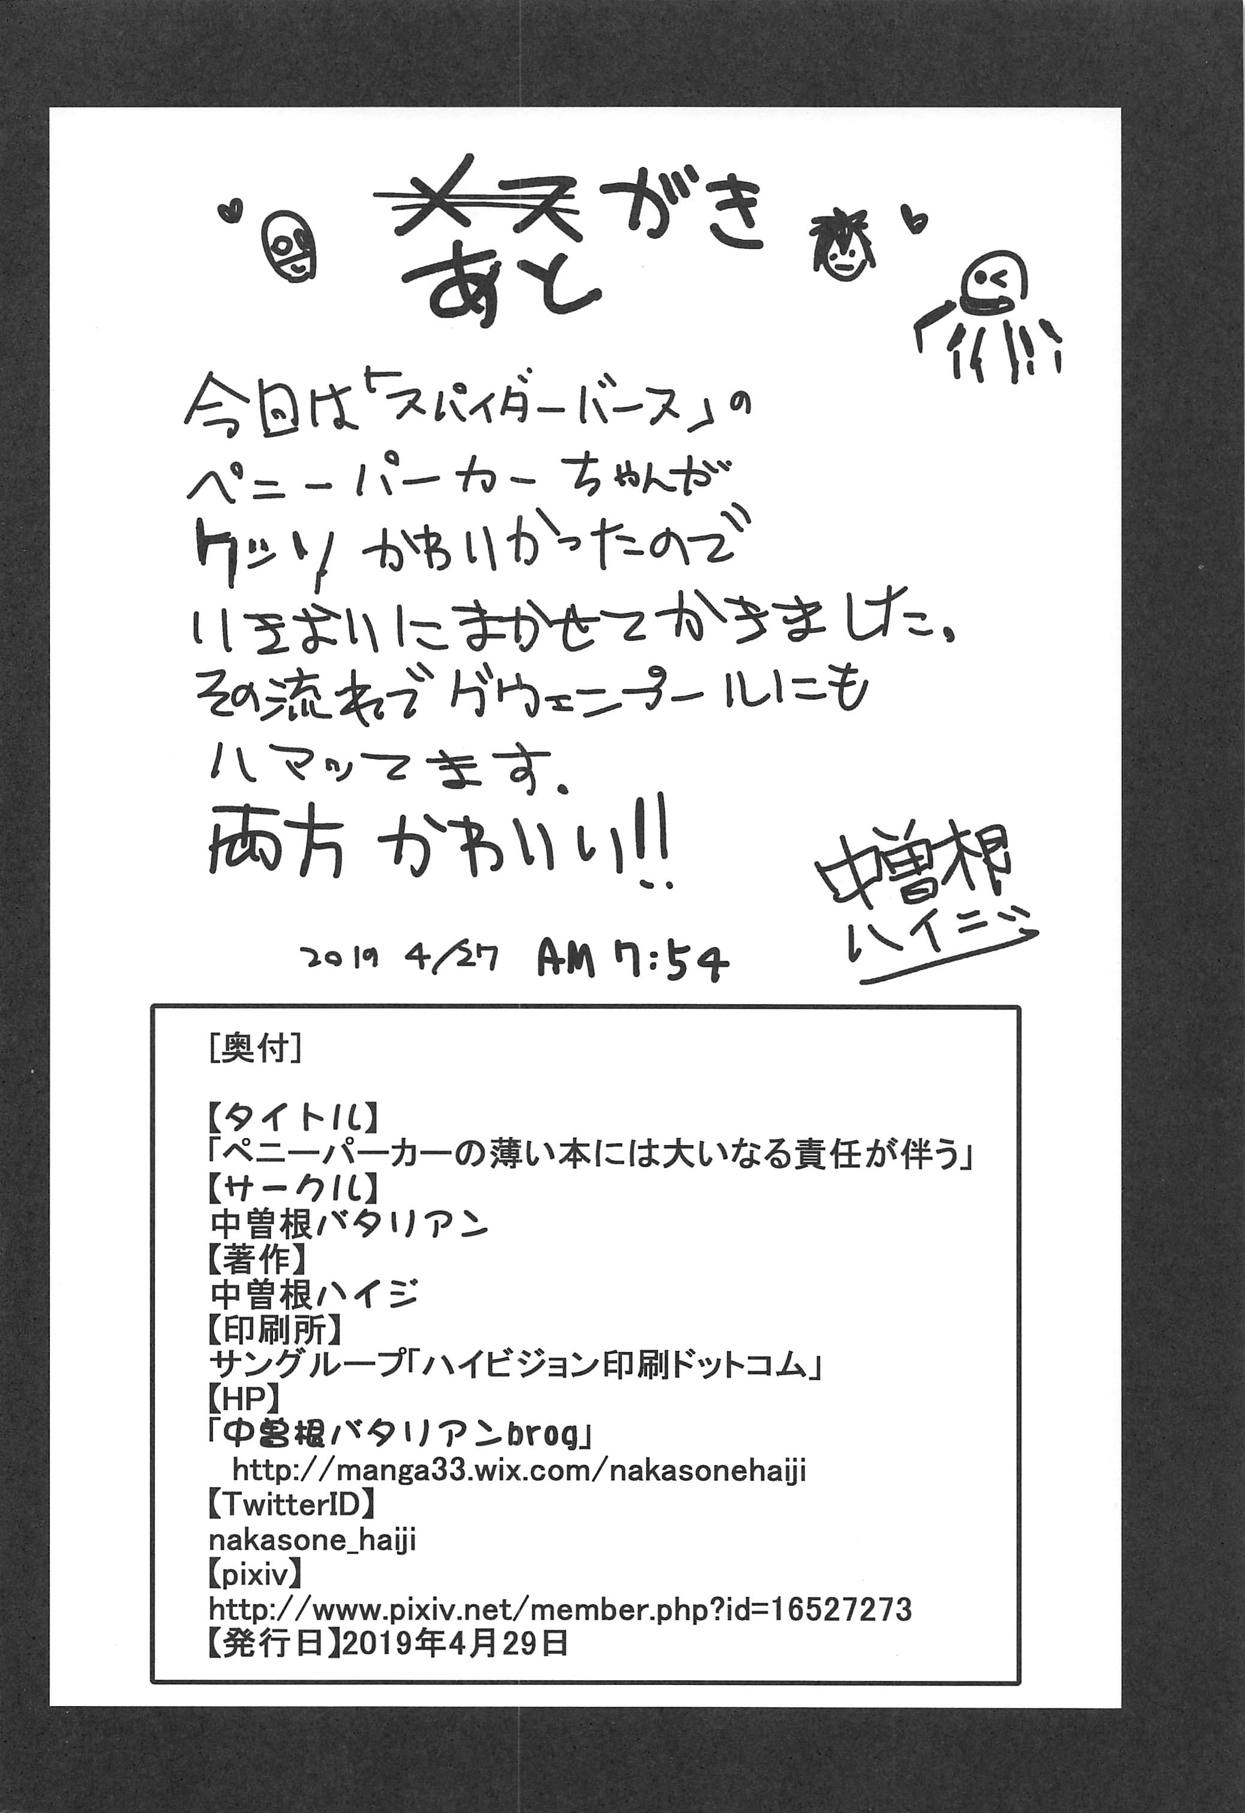 メスがき
あと
今回は「スパイダーバース」の
ペニーパーカーちゃんが
クッソかわいかったので
いきおいにまかせてかきました。
その流れでグウェンプールにも
ハマッてます。
両方かわいい!!
中曽根
ハイジ
2019 4/27 AM 7:54
[奥付]
【タイトル】
「ペニーパーカーの薄い本には大いなる責任が伴う」
【サークル】
中曽根バタリアン
【著作】
中曽根ハイジ
【印刷所】
サングループ「ハイビジョン印刷ドットコム」
【HP】
「中曽根バタリアンbrog」
http://manga33.wix.com/nakasonehaiji
【TwitterID】
nakasone_haiji
【pixiv】
http://www.pixiv.net/member.php?id=16527273
【発行日】2019年4月29日